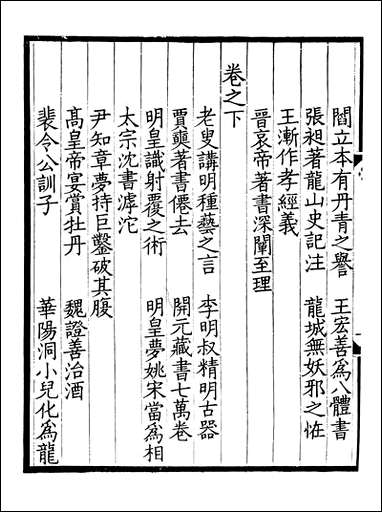 閻立本有丹青之譽　王宏善爲八體書
張昶著龍山史記注　龍城無妖邪之怪
王漸作孝經義
晉哀帝著書深闡至理
卷之下
老叟講明種藝之言　李明叔精明古器
賈奭著書僊去　開元藏書七萬卷
明皇識射覆之術　明皇夢姚宋當爲相
太宗沈書滹沱
尹知章夢持巨鑿破其腹
髙皇帝宴賞牡丹　魏證善治酒
裴令公訓子　華陽洞小兒化爲龍